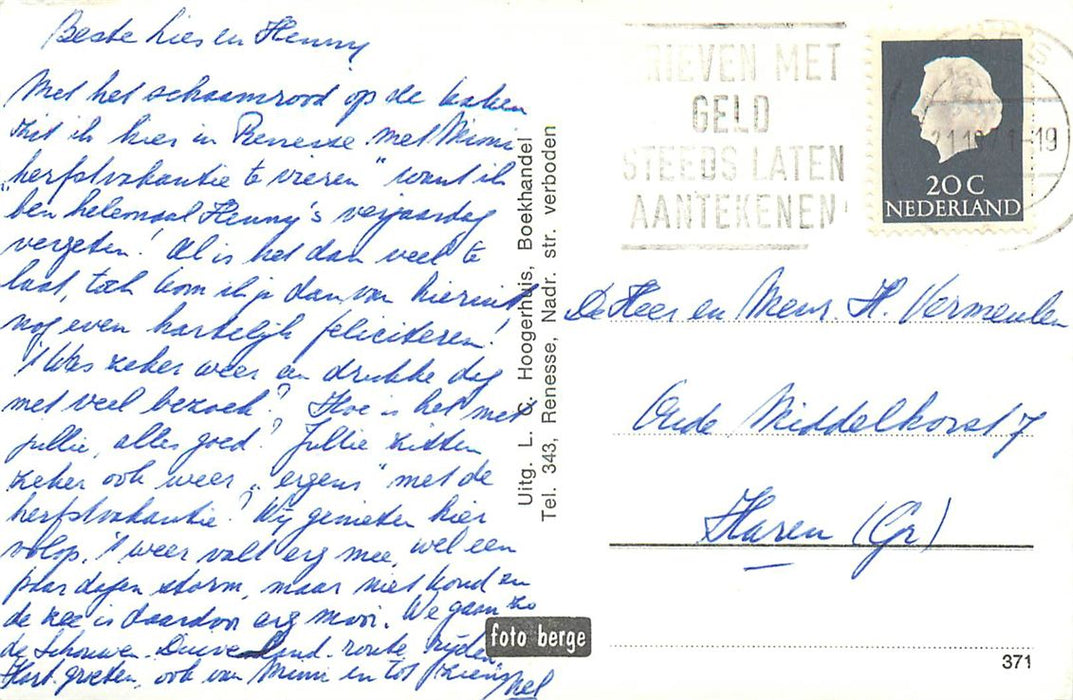 Beste Lies en Henny
Met het schaamrood op de kaken
zit ik hier in Renesse met Mimi
„herfstvakantie te vieren" want ik
ben helemaal Henny's verjaardag
vergeten! Al is het dan veel te
laat, toch kom ik je dan van hieruit
nog even hartelijk feliciteren!
't Was zeker weer een drukke dag
met veel bezoek? Hoe is het met
jullie, alles goed? Jullie zitten
zeker ook weer „ergens" met de
herfstvakantie? Wij genieten hier
volop, 't weer valt erg mee, wel een
paar dagen storm, maar niet koud en
de zee is daardoor erg mooi. We gaan zo
de Schouwen-Duiveland-route rijden.
Hart. groeten, ook van Mimi en tot ziens
Nel
Uitg. L. C. Hoogerhuis, Boekhandel
Tel. 343, Renesse, Nadr. str. verboden
foto berge
RIEVEN MET
GELD
STEEDS LATEN
AANTEKENEN
-19
20 C
NEDERLAND
De Heer en Mevr H. Vermeulen
Oude Middelhorst 7
Haren (Gr)
371